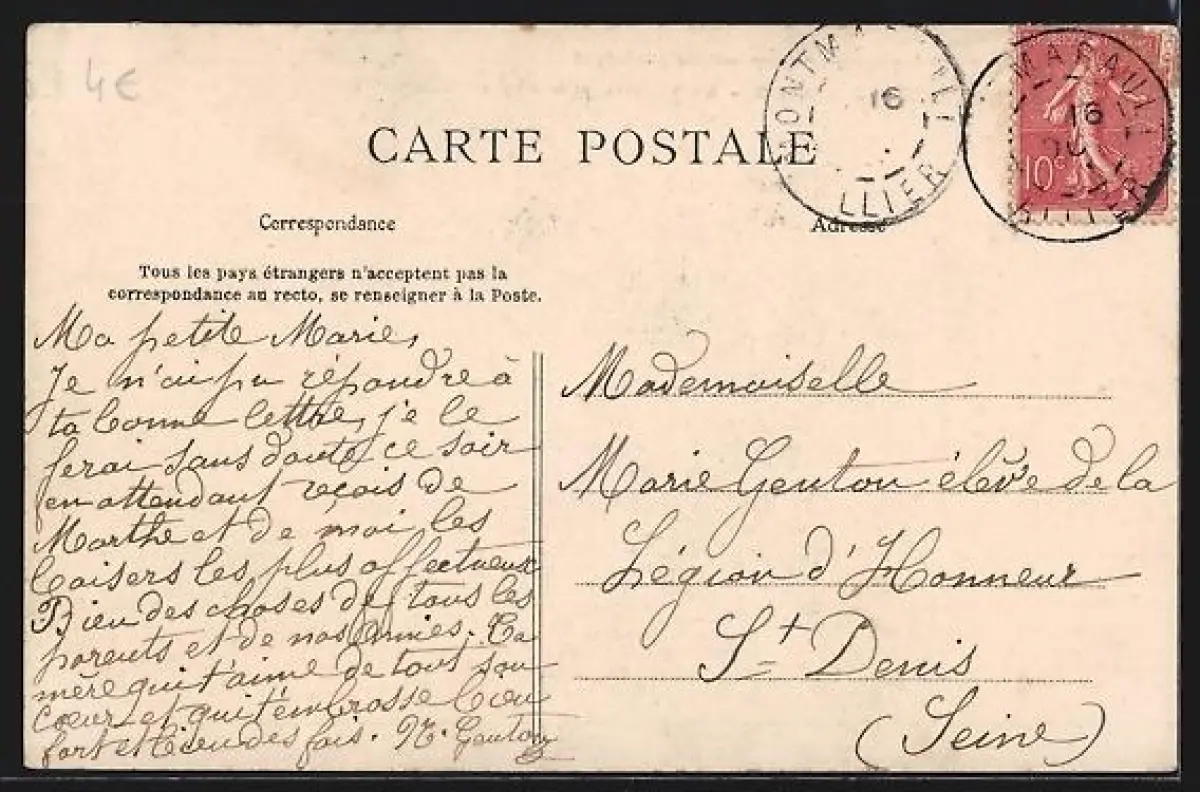 4€
CARTE POSTALE
Correspondance
Adresse
Tous les pays étrangers n'acceptent pas la
correspondance au recto, se renseigner à la Poste.
MONTMA
16
ALLIER
MARAULT
16
ALLIER
10c
Ma petite Marie,
Je n'ai pu répondre à
ta bonne lettre, je le
ferai sans doute ce soir
en attendant reçois de
Marthe et de moi les
baisers les plus affectueux
Bien des choses de tous les
parents et de nos amies. Ta
mère qui t'aime de tout son
cœur et qui t'embrasse bien
fort et bien des fois. M. Genton
Mademoiselle
Marie Genton élève de la
Légion d'Honneur
St Denis
(Seine)